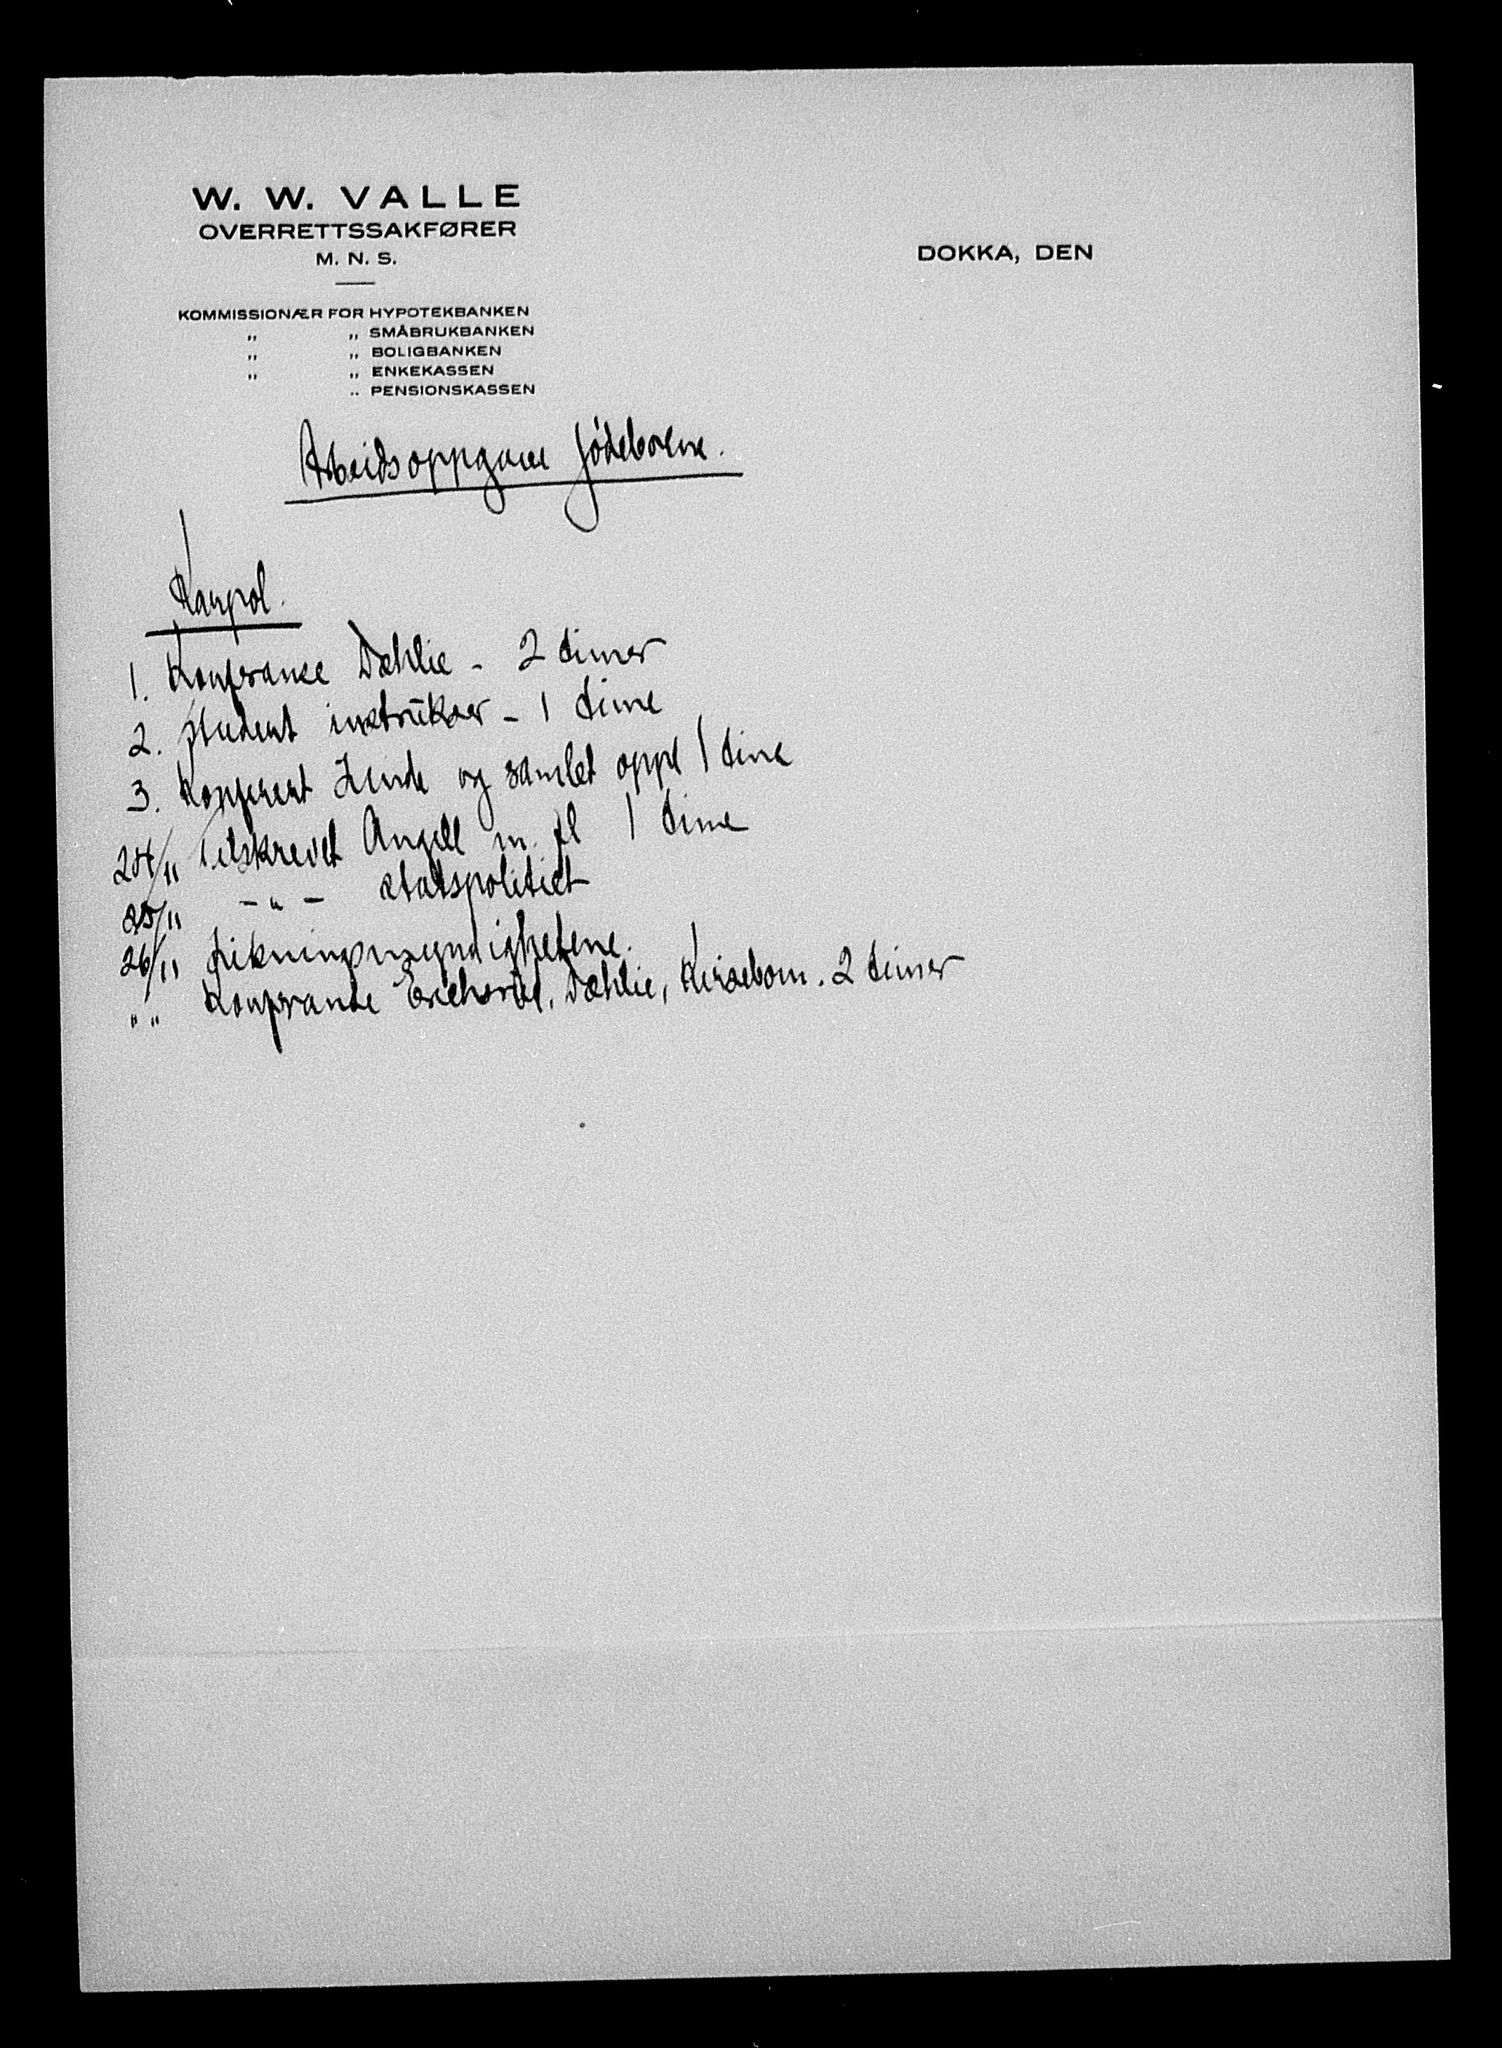 W. W. VALLE
OVERRETTSSAKFØRER
M. N. S.
DOKKA, DEN
KOMMISSIONÆR FOR HYPOTEKBANKEN
„ „ SMÅBRUKBANKEN
„ „ BOLIGBANKEN
„ „ ENKEKASSEN
„ PENSIONSKASSEN
Arbeidsoppgave jødeboene.
1. Konfranse Dæhlie - 2 timer
2. Studert instrukser - 1 time
3. Konferert Linde og samlet oppg 1 time
24/11 Tilskrevet Angell m. fl 1 time
25/11 - " - statspolitiet
26/11 Likningsmyndighetene.
" " Konfranse Erichsrud, Dæhlie, Kirsebom. 2 timer